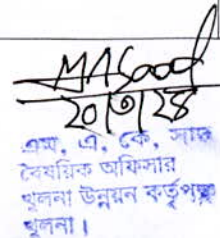 MASaad
২০|৩|২৪
এম, এ, কে, সাদ
বৈষয়িক অফিসার
খুলনা উন্নয়ন কর্তৃপক্ষ
খুলনা।